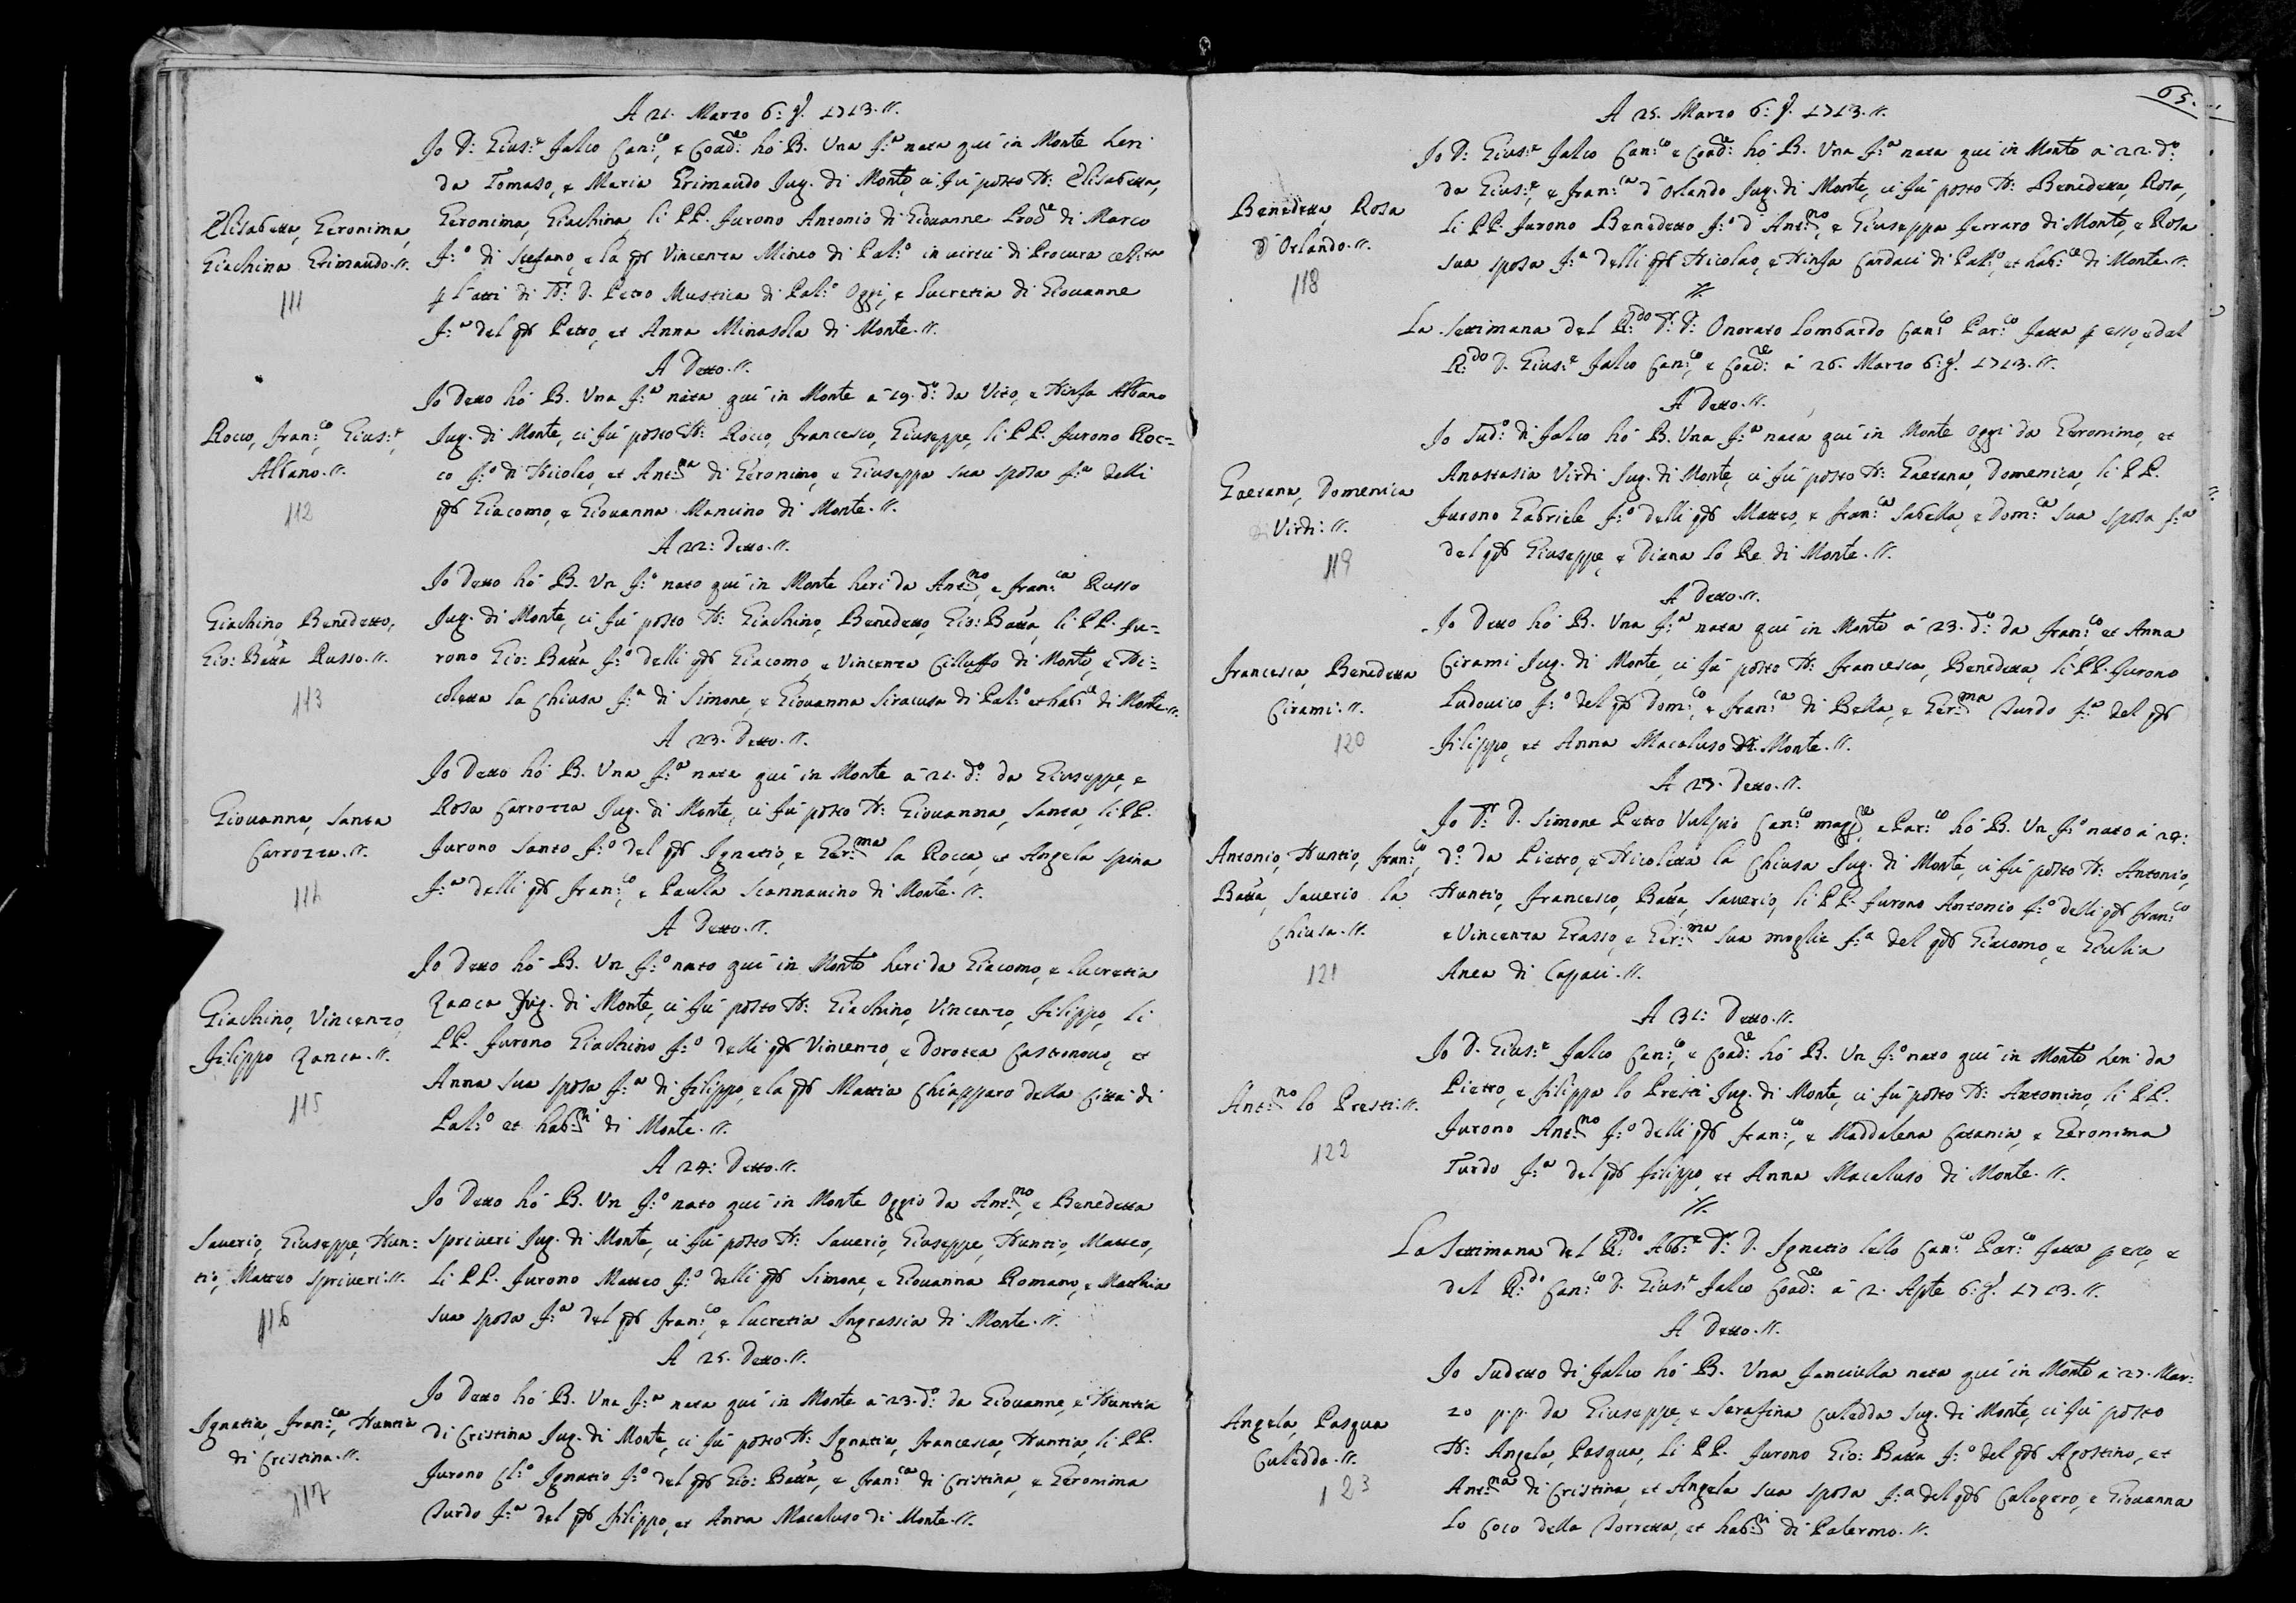 A 21. Marzo 6.ª Ind. 1713.//.
Elisabetta, Geronima,
Giachina Grimaudo.//.
111
Io D. Gius.e Falco Can.co, e Coad.re hò B. Una f.a nata quì in Monte heri
da Tomaso, e Maria Grimaudo Jug. di Monte, ci fù posto N: Elisabetta,
Geronima, Giachina, li PP. furono Antonio di Giovanne Prod.e di Marco
f.o di Stefano, e la qd Vincenza Mineo di Pal.o in virtù di Procura
l'atti di N.r D. Petro Mustica di Pal.o Oggi, e Lucretia di Giovanne
f.a del qd Petro, et Anna Minasola di Monte.//.
A Detto.//.
Rocco, Fran.co, Gius.e,
Albano.//.
112
Io Detto hò B. Una f.a nata quì in Monte a 19. d.o da Vito, e Ninfa Albano
Jug. di Monte, ci fù posto N: Rocco, Francesco, Giuseppe, li PP. furono Roc=
co f.o di Nicolao, et Ant.na di Geronimo, e Giuseppa sua sposa f.a delli
qd Giacomo, e Giovanna Mancino di Monte.//.
A 22: Detto.//.
Giachino, Benedetto,
Gio: Batta Russo.//.
113
Io Detto hò B. Un f.o nato quì in Monte heri da Ant.no, e Fran.ca Russo
Jug. di Monte, ci fù posto N: Giachino, Benedetto, Gio: Batta, li PP. fu=
rono Gio: Batta f.o delli qd Giacomo, e Vincenza Cilluffo di Monte, e Ni=
coletta la Chiusa f.a di Simone, e Giovanna Siracusa di Pal.o et hab.te di Monte.//.
A 23. Detto.//.
Giovanna, Santa
Carrozza.//.
114
Io Detto hò B. Una f.a nata quì in Monte à 21. d.o da Giuseppe, e
Rosa Carrozza Jug. di Monte, ci fù posto N: Giovanna, Santa, li PP.
furono Santo f.o del qd Ignatio, e Ger.ma la Rocca, et Angela Spina
f.a delli qd Fran.co, e Paula Scannavino di Monte.//.
A Detto.//.
Giachino, Vincenzo,
Filippo Zanca.//.
115
Io Detto hò B. Un f.o nato quì in Monte heri da Giacomo, e Lucretia
Zanca Jug. di Monte, ci fù posto N: Giachino, Vincenzo, Filippo, li
PP. furono Giachino f.o delli qd Vincenzo, e Dorotea Castronovo, et
Anna sua sposa f.a di Filippo, e la qd Mattia Chiapparo della Città di
Pal.o et hab.ti di Monte.//.
A 24: Detto.//.
Saverio, Giuseppe, Nun=
tio, Matteo Spriveri.//.
116
Io Detto hò B. Un f.o nato quì in Monte Oggio da Ant.no, e Benedetta
Spriveri Jug. di Monte, ci fù posto N: Saverio, Giuseppe, Nuntio, Matteo,
Li PP. furono Matteo f.o delli qd Simone, e Giovanna Romano, e Matthia
sua sposa f.a del qd Fran.co, e Lucretia Ingrassia di Monte.//.
A 25. Detto.//.
Ignatia, Fran.ca, Nuntia
di Cristina.//.
117
Io Detto hò B. Una f.a nata quì in Monte à 23. d.o da Giovanne, e Nuntia
di Cristina Jug. di Monte, ci fù posto N: Ignatia, Francesca, Nuntia, li PP.
furono Cl.o Ignatio f.o del qd Gio: Batta, e Fran.ca di Cristina, e Geronima
Turdo f.a del qd Filippo, et Anna Macaluso di Monte.//.
65.
A 25. Marzo 6.ª Ind. 1713.//.
Benedetta, Rosa
d'Orlando.//.
118
Io D. Gius.e Falco Can.co e Coad.re hò B. Una f.a nata quì in Monte à 22. d.o
da Gius.e, e Fran.ca d'Orlando Jug. di Monte, ci fù posto N: Benedetta, Rosa,
Li PP. furono Benedetto f.o d'Ant.no, e Giuseppa Ferraro di Monte, e Rosa
sua sposa f.a delli qd Nicolao, e Ninfa Cardaci di Pal.o, et hab.te di Monte.//.
//.
La Settimana del R.do D.r D. Onorato Lombardo Can.co Par.co fatta p esso, e dal
R.do D. Gius.e Falco Can.co, e Coad.re à 26. Marzo 6.ª Ind. 1713.//.
A Detto.//.
Gaetana, Domenica
di Virdi.//.
119
Io Sud.o di Falco hò B. Una f.a nata quì in Monte Oggi da Geronimo, et
Anastasia Virdi Jug. di Monte, ci fù posto N: Gaetana, Domenica, li PP.
furono Gabriele f.o delli qd Matteo, e Fran.ca Sabella, e Dom.ca sua sposa f.a
del qd Giuseppe, e Diana lo Re di Monte.//.
A Detto.//.
Francesca, Benedetta
Cirami.//.
120
Io Detto hò B. Una f.a nata quì in Monte à 23. d.o da Fran.co et Anna
Cirami Jug. di Monte, ci fù posto N: Francesca, Benedetta, li PP. furono
Ludovico f.o del qd Dom.co, e Fran.ca di Bella, e Ger.ma Turdo f.a del qd
Filippo, et Anna Macaluso di Monte.//.
A 27. Detto.//.
Antonio, Nuntio, Fran.co
Batta, Saverio la
Chiusa.//.
121
Io D.r D. Simone Petro Vulpio Can.co magg.re e Par.co hò B. Un f.o nato à 24:
d.o da Pietro, e Nicoletta la Chiusa Jug. di Monte, ci fù posto N: Antonio,
Nuntio, Francesco, Batta, Saverio, li PP. furono Antonio f.o delli qd Fran.co
e Vincenza Grasso, e Ger.ma sua moglie f.a del qd Giacomo, e Giulia
Anea di Capaci.//.
A 31: Detto.//.
Ant.no lo Presti.//.
122
Io D. Gius.e Falco Can.co, e Coad.re hò B. Un f.o nato quì in Monte heri da
Pietro, e Filippa lo Presti Jug. di Monte, ci fù posto N: Antonino, li PP.
furono Ant.no f.o delli qd Fran.co, e Maddalena Catania, e Geronima
Turdo f.a del qd Filippo, et Anna Macaluso di Monte.//.
//.
La Settimana del R.do Abb.e D.r D. Ignatio Lello Can.co Par.co fatta p esso, e
del R.do Can.co D. Gius.e Falco Coad.re à 2. Aple 6.ª Ind. 1713.//.
A Detto.//.
Angela, Pasqua
Culedda.//.
123
Io Sudetto di Falco hò B. Una fanciulla nata quì in Monte à 27. Mar=
zo p.p. da Giuseppe, e Serafina Culedda Jug. di Monte, ci fù posto
N: Angela, Pasqua, Li PP. furono Gio: Batta f.o del qd Agostino, et
Ant.na di Cristina, et Angela sua sposa f.a del qd Calogero, e Giovanna
Lo Coco della Torretta, et hab.ti di Palermo.//.